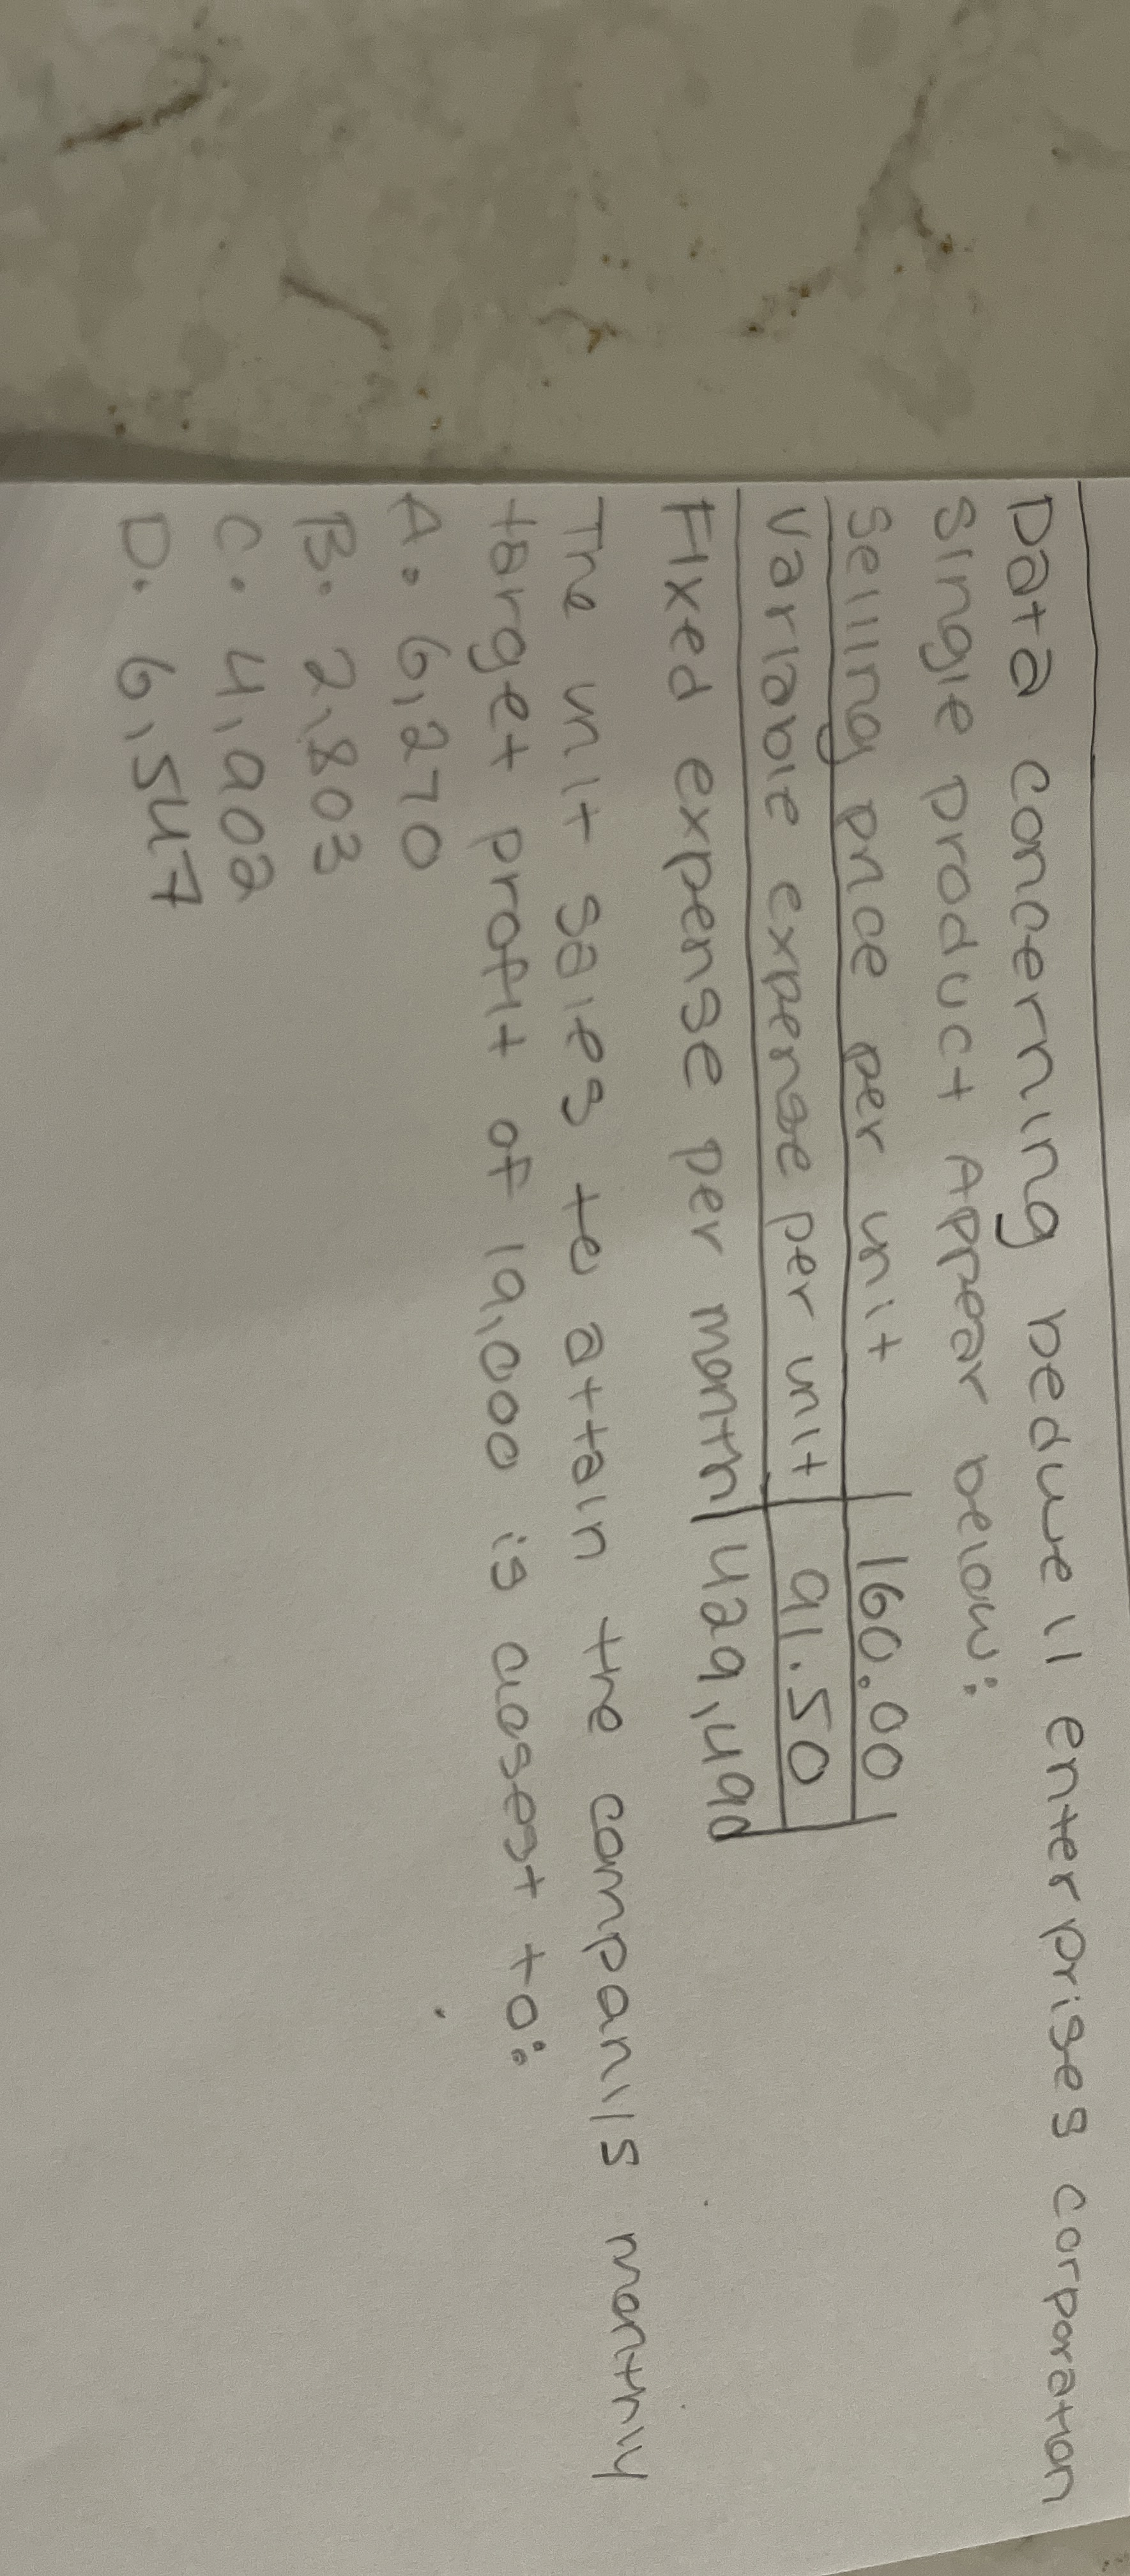 Data concerning bedwell enterprises corporation
single product Appear below:
Selling price per unit 160.00
Variable expense per unit 91.50
Fixed expense per month 429,490
The unit sales to attain the companils monthly
target profit of 19,000 is closest to:
A. 6,270
B. 2,803
C. 4,902
D. 6,547